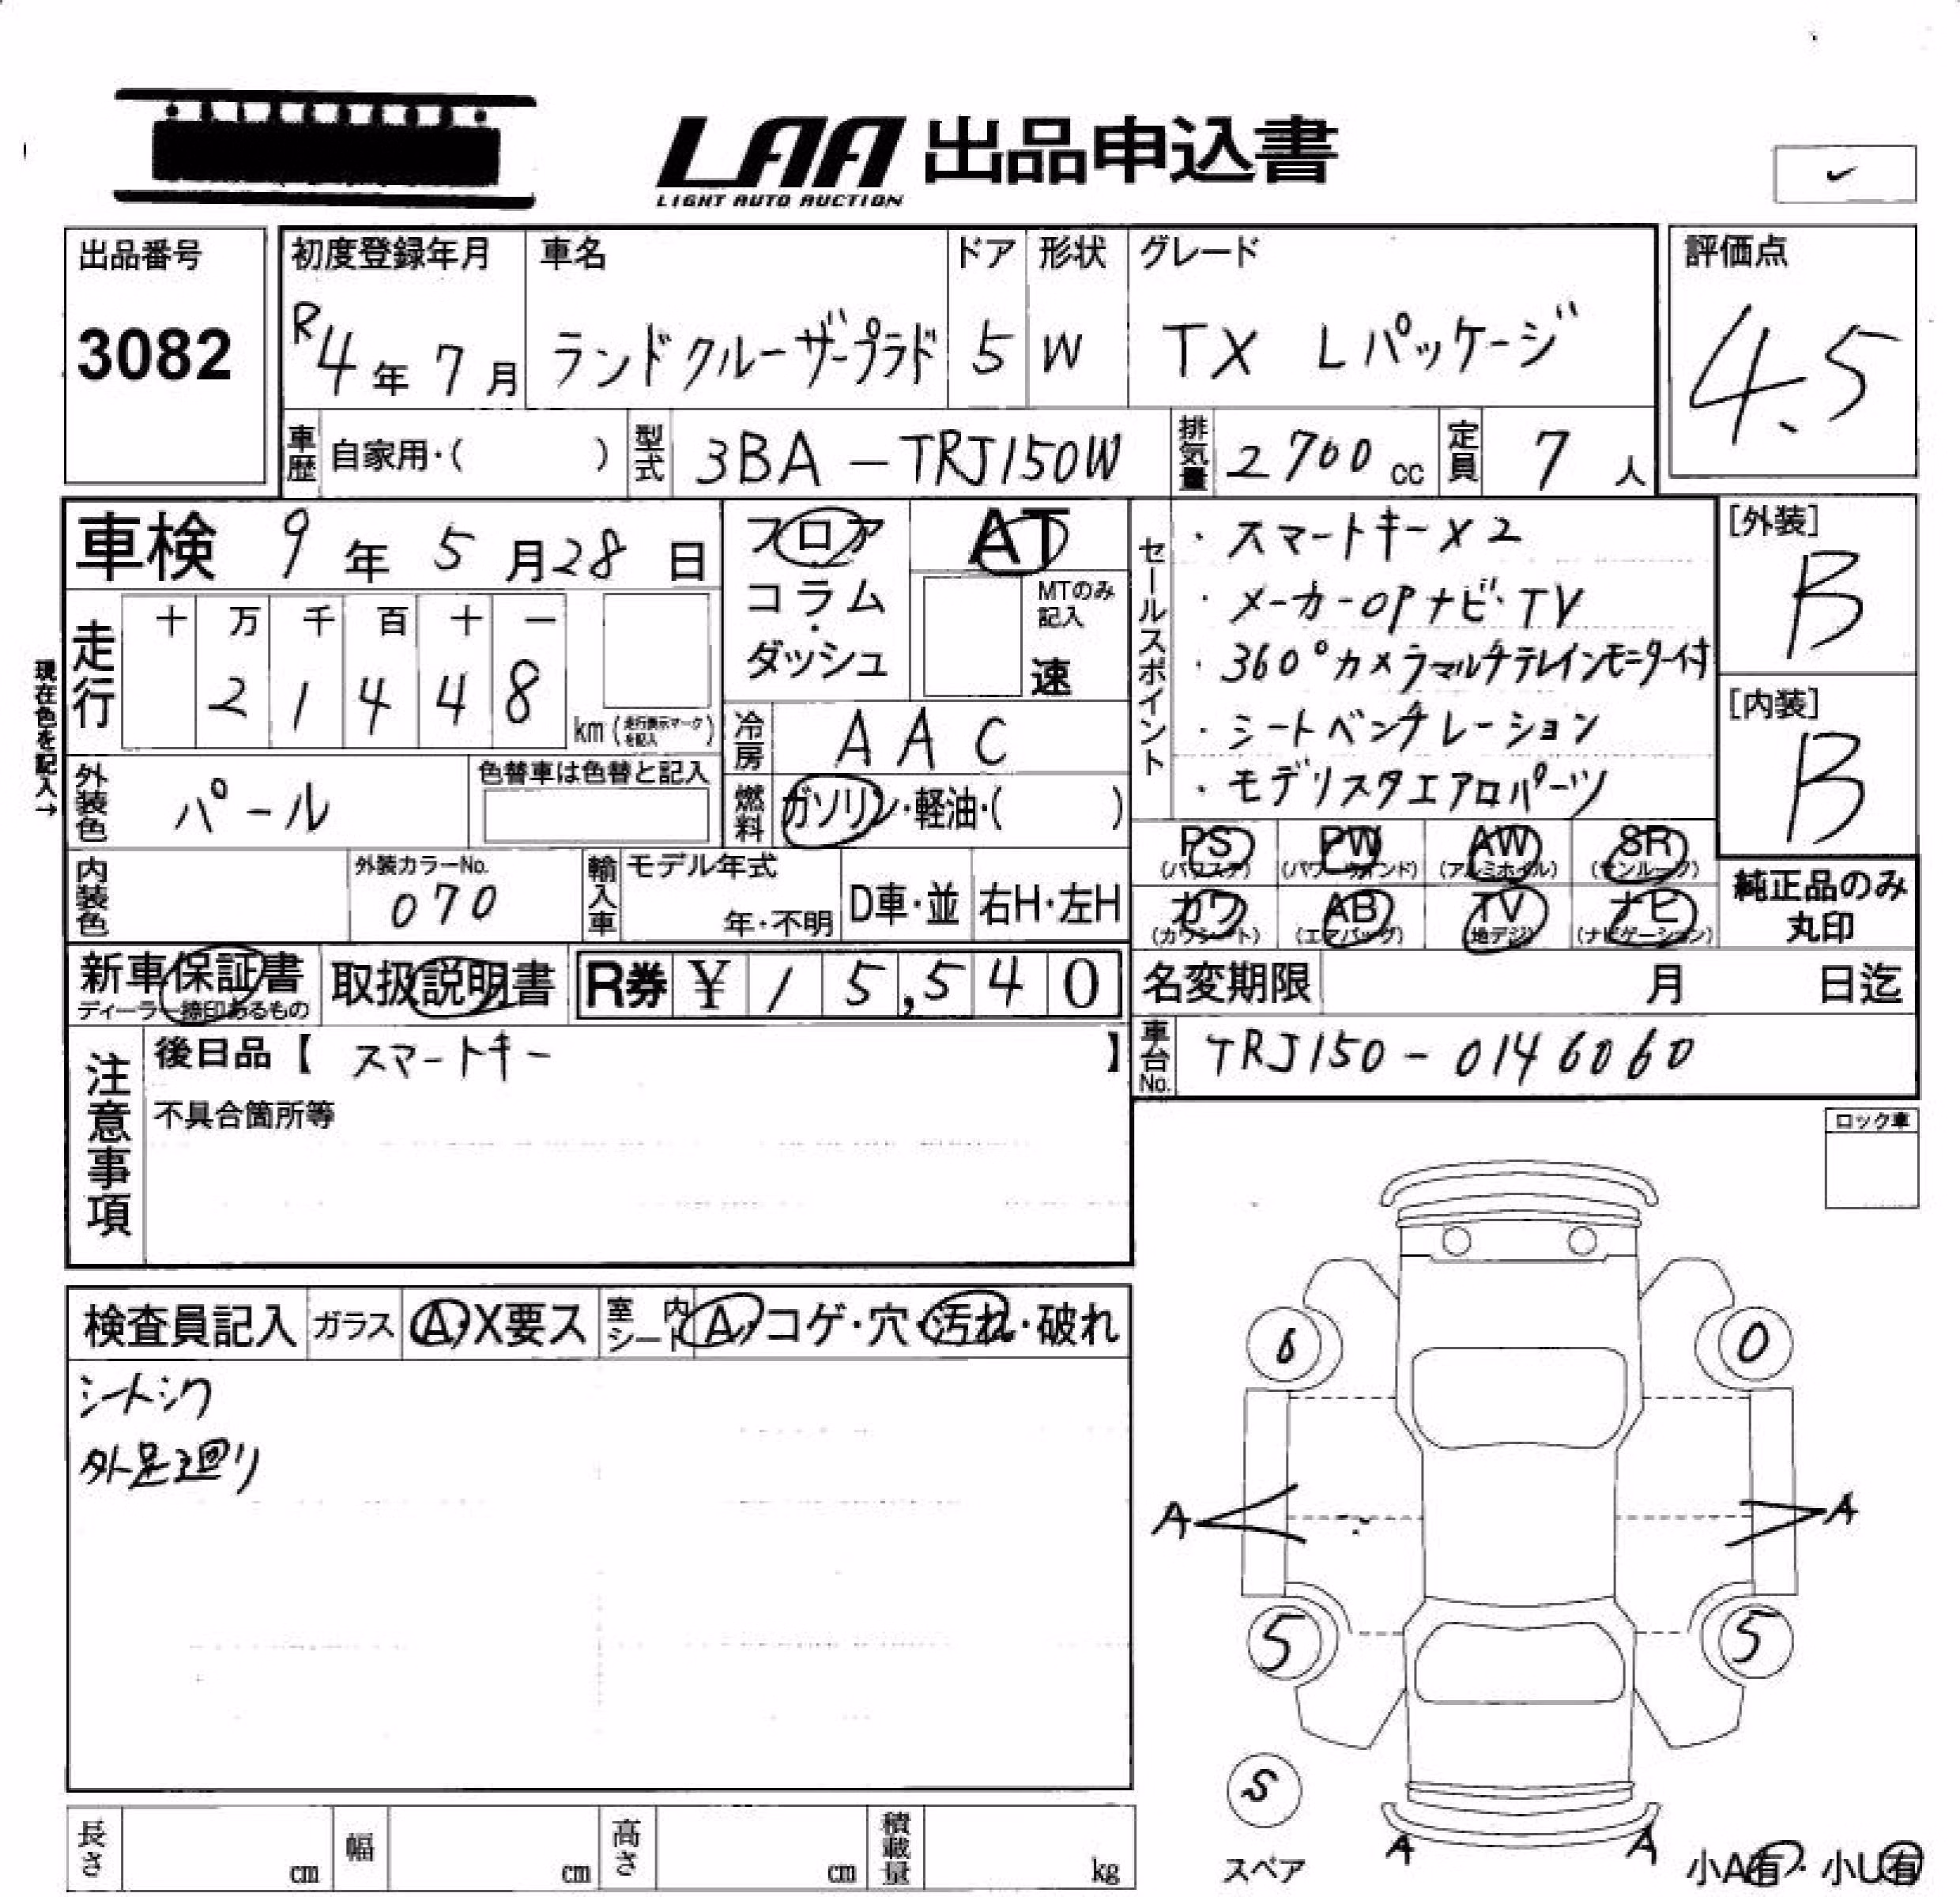 LAA 出品申込書
LIGHT AUTO AUCTION
出品番号
3082
初度登録年月
R4年7月
車名
ランドクルーザープラド
ドア
5
形状
W
グレード
TX Lパッケージ
評価点
4.5
車歴 自家用・( )
型式 3BA-TRJ150W
排気量 2700cc
定員 7人
車検 9年5月28日
フロア
コラム
・
ダッシュ
AT
MTのみ
記入
速
現在色を記入→
走行
十 万 千 百 十 一
2 1 4 4 8
km(走行表示マークを記入)
冷房 AAC
燃料 ガソリン・軽油・( )
外装色 パール
色替車は色替と記入
内装色
外装カラーNo.
070
輸入車
モデル年式
年・不明
D車・並
右H・左H
セールスポイント
・スマートキー×2
・メーカーOPナビ・TV
・360°カメラマルチテレインモニター付
・シートベンチレーション
・モデリスタエアロパーツ
[外装]
B
[内装]
B
PS (パワステ)
PW (パワーウインド)
AW (アルミホイル)
SR (サンルーフ)
カワ (カワシート)
AB (エアバッグ)
TV (地デジ)
ナビ (ナビゲーション)
純正品のみ
丸印
新車保証書
ディーラー捺印あるもの
取扱説明書
R券 ¥15,540
名変期限 月 日迄
車台No. TRJ150-0146060
注意事項
後日品【 スマートキー 】
不具合箇所等
ロック車
検査員記入
ガラス A・X要ス
室内シート A・コゲ・穴・汚れ・破れ
シートシワ
外足廻り
6
0
A
A
5
5
S
スペア
A
A
小A有・小U有
長さ cm
幅 cm
高さ cm
積載量 kg